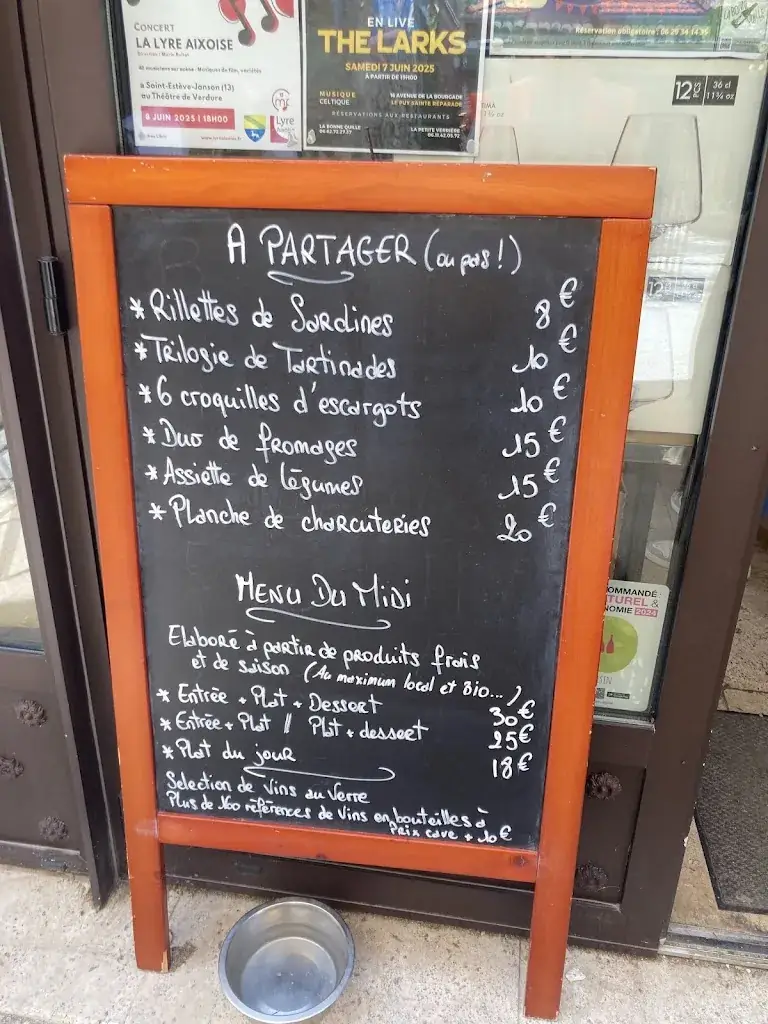 CONCERT
LA LYRE AIXOISE
à Saint-Estève-Janson (13)
au Théâtre de Verdure
8 JUIN 2025 | 18H00
Lyre
EN LIVE
THE LARKS
SAMEDI 7 JUIN 2025
À PARTIR DE 19H00
MUSIQUE
CELTIQUE
16 AVENUE DE LA BOURGADE
LE PUY SAINTE RÉPARADE
RÉSERVATIONS AUX RESTAURANTS
LA BONNE QUILLE
LA PETITE VERRIÈRE
Réservation obligatoire : 06 29 54 14 35
12 PCS
36 cl
11 ¾ oz
A PARTAGER (ou pas !)
* Rillettes de Sardines 8 €
* Trilogie de Tartinades 10 €
* 6 croquilles d'escargots 10 €
* Duo de fromages 15 €
* Assiette de légumes 15 €
* Planche de charcuteries 20 €
MENU DU MIDI
Elaboré à partir de produits frais
et de saison (Au maximum local et Bio...)
* Entrée + Plat + Dessert 30€
* Entrée + Plat // Plat + dessert 25€
* Plat du jour 18€
Selection de vins au verre
Plus de 160 références de vins en bouteilles à
Prix cave + 10€
12
OMMANDÉ
TUREL &
NOMIE 2024